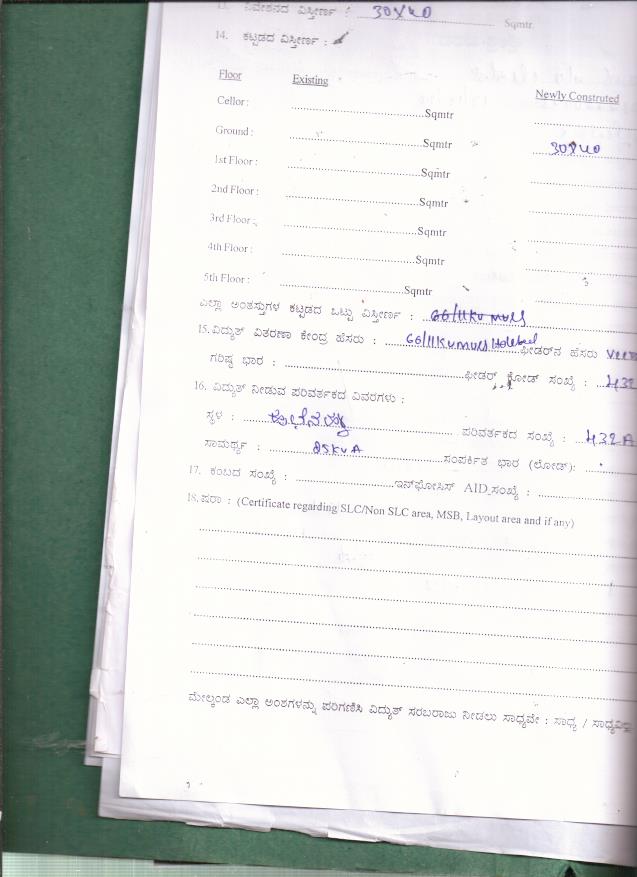 13. ನಿವೇಶನದ ವಿಸ್ತೀರ್ಣ : 30X40 Sqmtr.
14. ಕಟ್ಟಡದ ವಿಸ್ತೀರ್ಣ :
Floor Existing Newly Construted
Cellor : Sqmtr
Ground : Sqmtr 30X40
1st Floor : Sqmtr
2nd Floor : Sqmtr
3rd Floor : Sqmtr
4th Floor : Sqmtr
5th Floor : Sqmtr
ಎಲ್ಲಾ ಅಂತಸ್ತುಗಳ ಕಟ್ಟಡದ ಒಟ್ಟು ವಿಸ್ತೀರ್ಣ : 66/11KV MUSS
15. ವಿದ್ಯುತ್ ವಿತರಣಾ ಕೇಂದ್ರ ಹೆಸರು : 66/11KV MUSS ಫೀಡರ್‌ನ ಹೆಸರು
ಗರಿಷ್ಠ ಭಾರ : ಫೀಡರ್ ಕೋಡ್ ಸಂಖ್ಯೆ : 432
16. ವಿದ್ಯುತ್ ನೀಡುವ ಪರಿವರ್ತಕದ ವಿವರಗಳು :
ಸ್ಥಳ : ಪರಿವರ್ತಕದ ಸಂಖ್ಯೆ : 432A
ಸಾಮರ್ಥ್ಯ : 25KVA ಸಂಪರ್ಕಿತ ಭಾರ (ಲೋಡ್):
17. ಕಂಬದ ಸಂಖ್ಯೆ : ಇನ್‌ಫೋಸಿಸ್ AID ಸಂಖ್ಯೆ :
18. ಷರಾ : (Certificate regarding SLC/Non SLC area, MSB, Layout area and if any)
ಮೇಲ್ಕಂಡ ಎಲ್ಲಾ ಅಂಶಗಳನ್ನು ಪರಿಗಣಿಸಿ ವಿದ್ಯುತ್ ಸರಬರಾಜು ನೀಡಲು ಸಾಧ್ಯವೇ : ಸಾಧ್ಯ / ಸಾಧ್ಯವಿಲ್ಲ